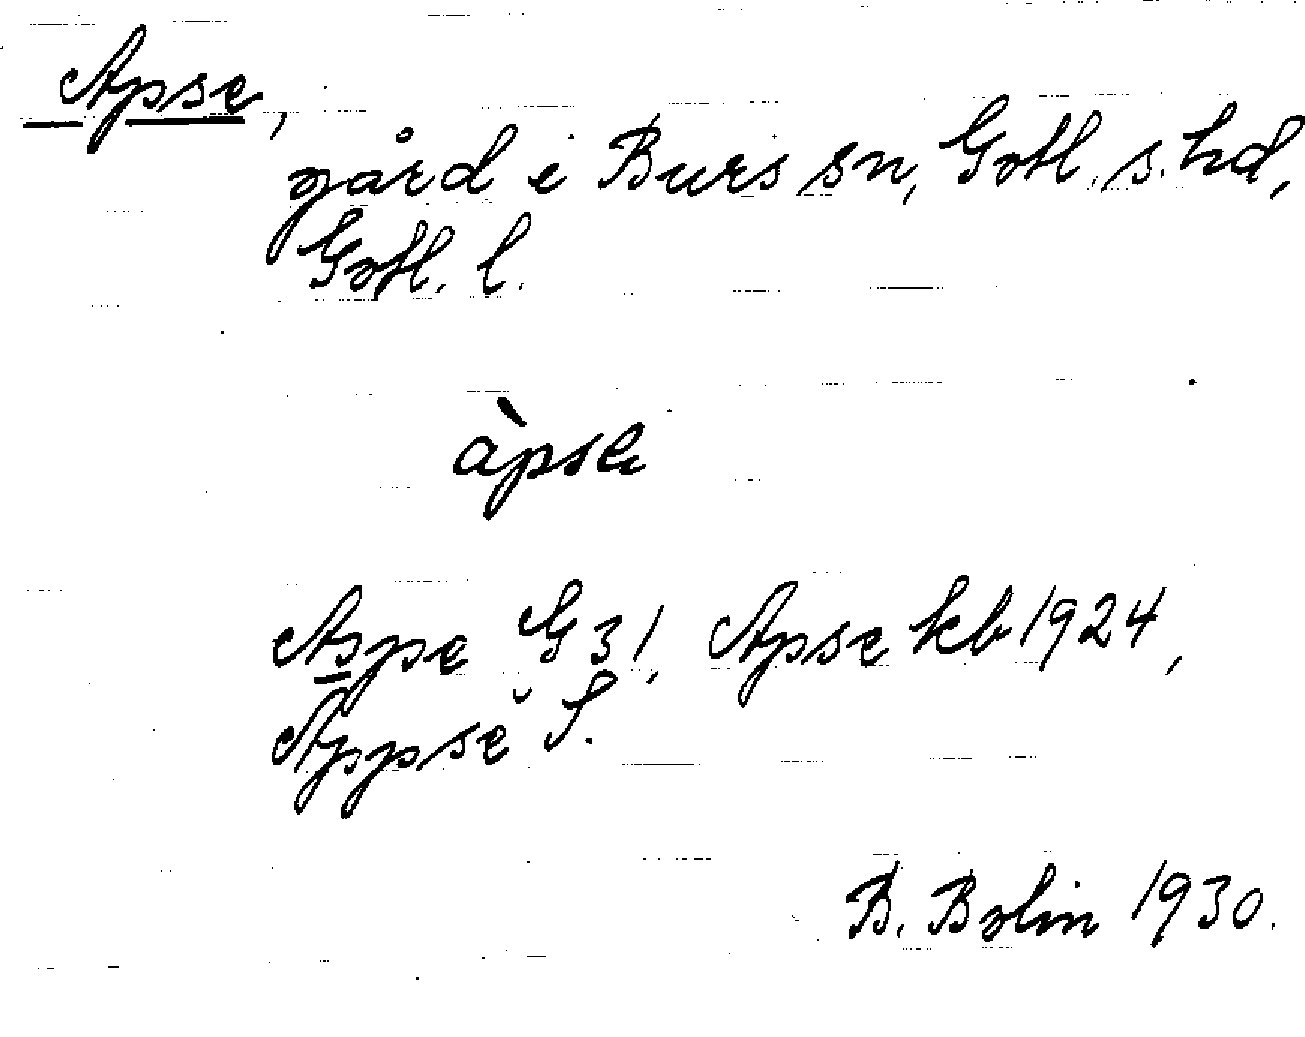 Apse,
gård i Burs sn, Gotl. s. hd,
Gotl. l.
àpse
Aspe G 31, Apse kb 1924,
Äppsĕ S.
B. Bolin 1930.